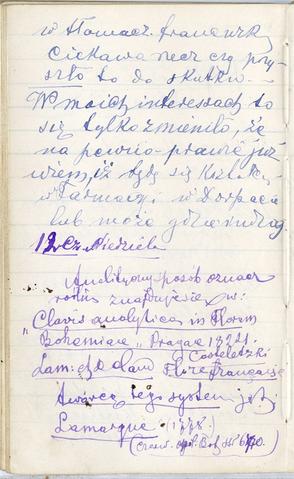 w tłomacz. francuzk.
Ciekawa rzecz czy przy-
szło to do skutku. –
W moich interessach to
się tylko zmieniło, że
na pewno prawie już
wiem, iż będę się kształc.
w farmacyi w Dorpacie
lub może gdzieindziej
12 Cz. Niedziela
Analityczny sposób oznacz.
roślin znajduje się w:
"Clavis analytica in Floram
Bohemiae" Pragae 1824.
Costeletzki
Lam. et De Cand. Flore française
twórcą tego system. jest
Lamarque (1778.